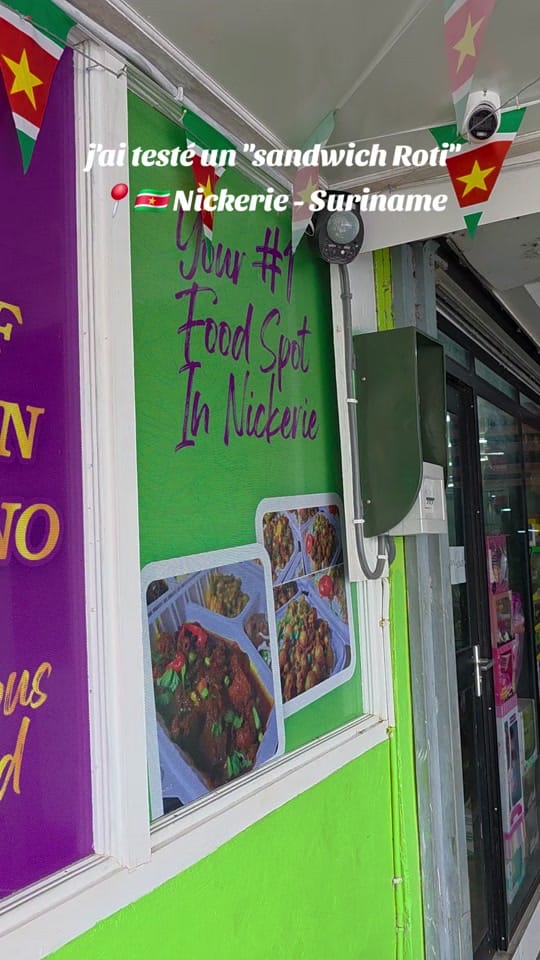 j'ai testé un "sandwich Roti"
📍🇸🇷 Nickerie - Suriname
Your #1
Food Spot
In Nickerie
F
N
NO
ous
d